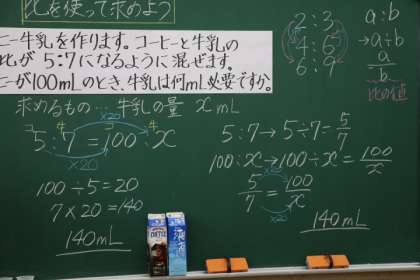 比を使って求めよう
ヒー牛乳を作ります。コーヒーと牛乳の
比が 5:7になるように混ぜます。
ヒーが100mLのとき、牛乳は何mL必要ですか。
求めるもの…牛乳の量 x mL
×20
コ 牛 コ 牛
5:7=100:x
×20
100÷5=20
7×20=140
140mL
2:3
4:6
6:9
a:b
→a÷b
a/b
比の値
5:7→5÷7=5/7
100:x→100÷x=100/x
×20
5/7=100/x
×20
140mL
COFFEE